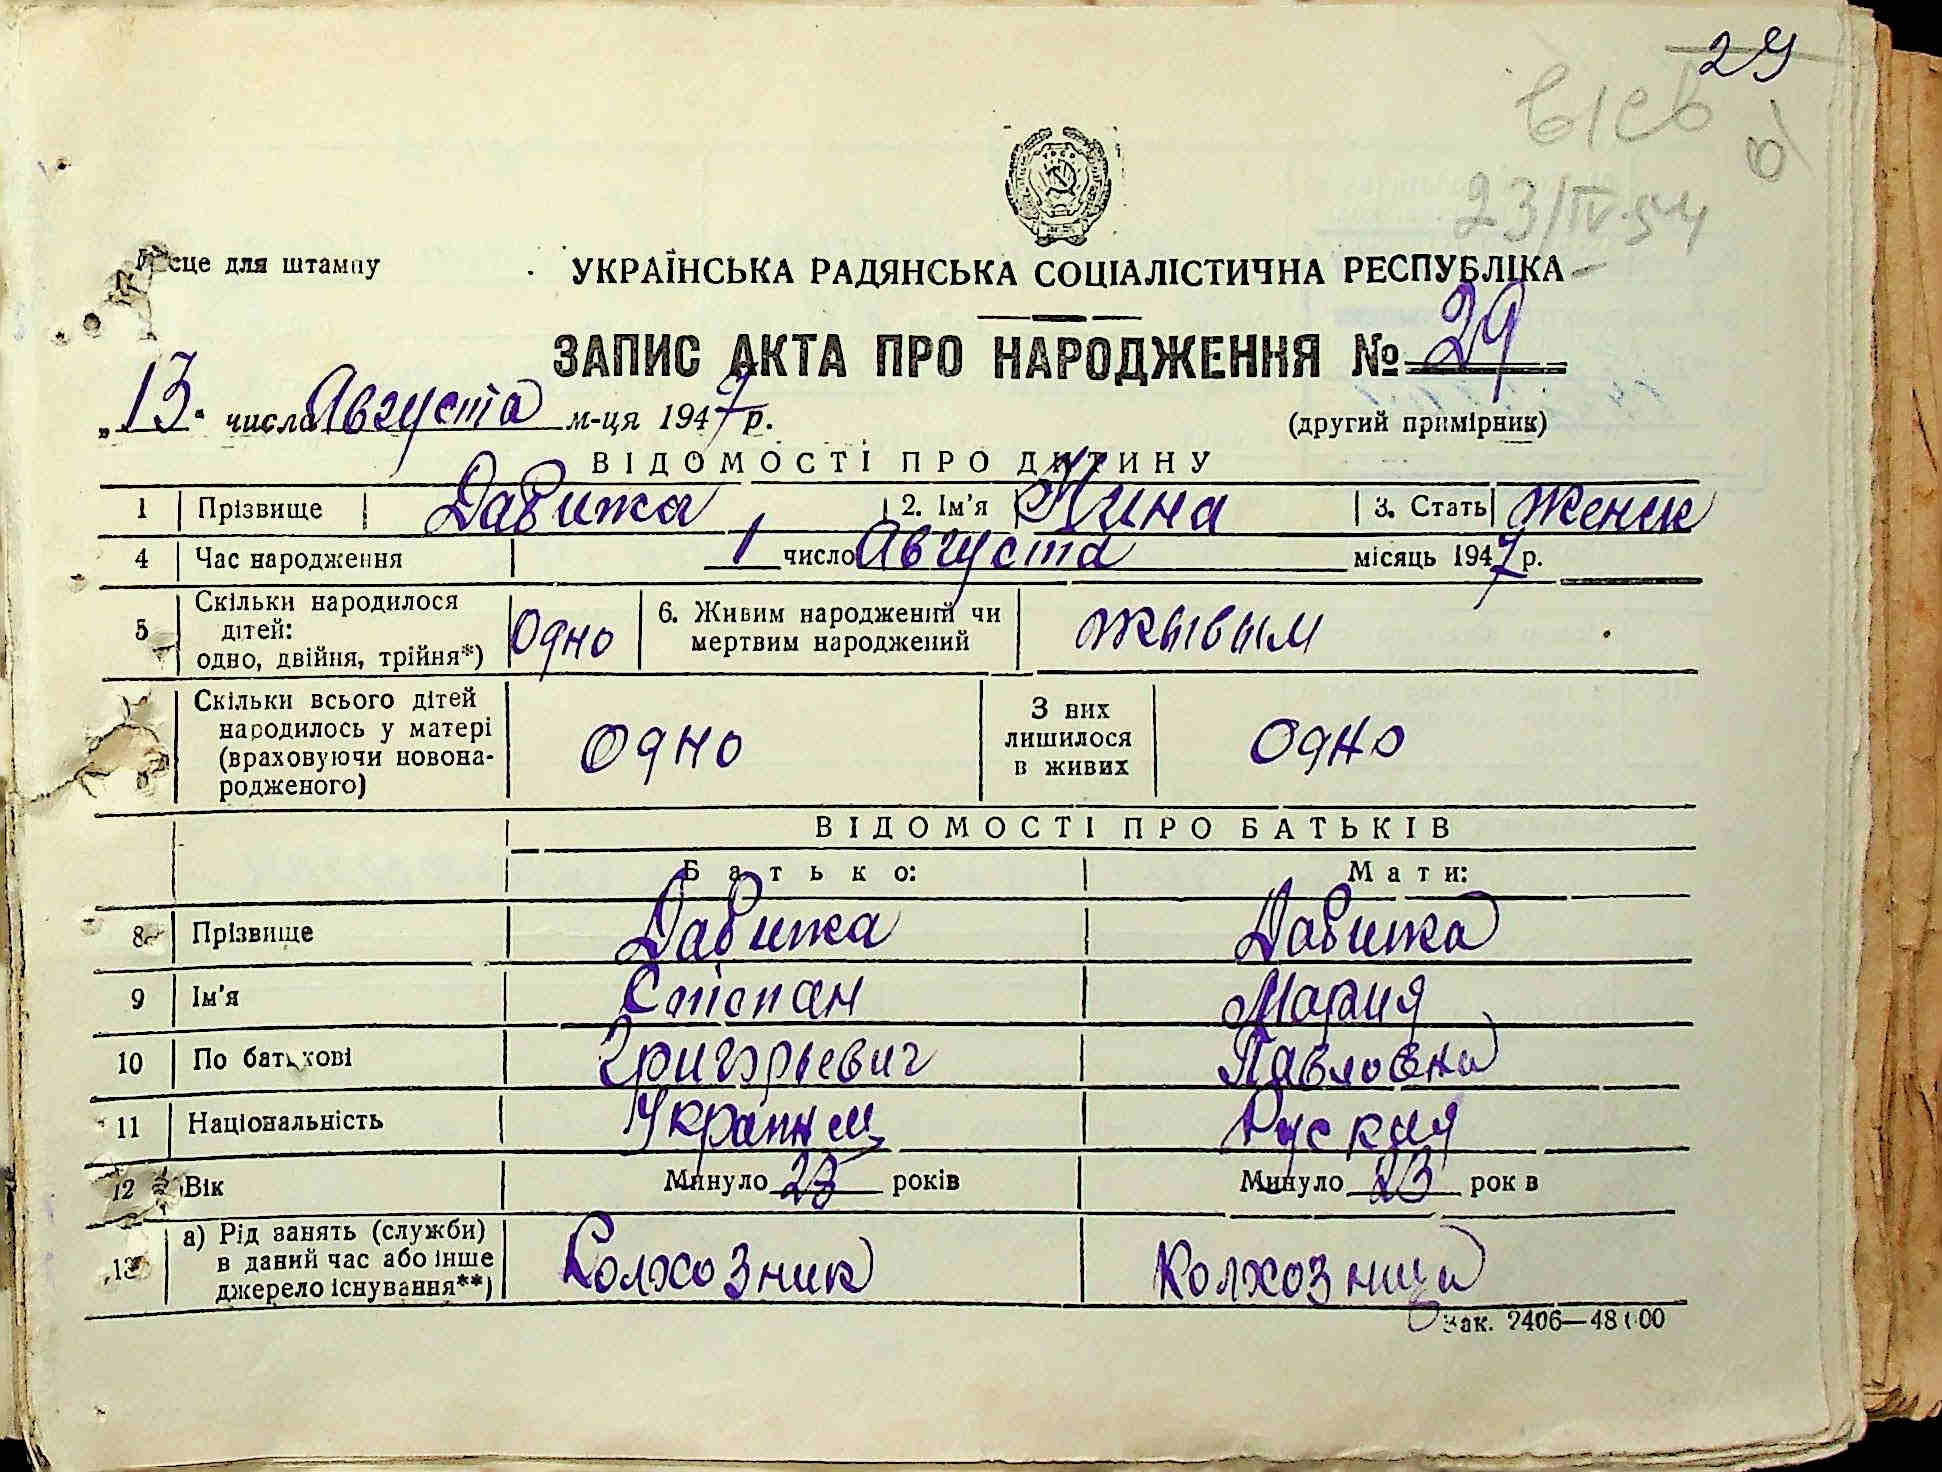 29
23/IV-54
Місце для штампу
УКРАЇНСЬКА РАДЯНСЬКА СОЦІАЛІСТИЧНА РЕСПУБЛІКА
ЗАПИС АКТА ПРО НАРОДЖЕННЯ № 29
„13" числа Августа м-ця 1947 р.
(другий примірник)
ВІДОМОСТІ ПРО ДИТИНУ
1 Прізвище Давижа 2. Ім'я Нина 3. Стать Женск
4 Час народження 1 число Августа місяць 1947 р.
5 Скільки народилося дітей: одно, двійня, трійня*) Одно 6. Живим народжений чи мертвим народжений Жывым
Скільки всього дітей народилось у матері (враховуючи новонародженого) Одно З них лишилося в живих Одно
ВІДОМОСТІ ПРО БАТЬКІВ
Батько: Мати:
8 Прізвище Давижа Давижа
9 Ім'я Степан Мария
10 По батькові Григорьевич Павловна
11 Національність Украинец Руская
12 Вік Минуло 23 років Минуло 23 років
13 а) Рід занять (служби) в даний час або інше джерело існування**) Колхозник Колхозница
Зак. 2406—48000